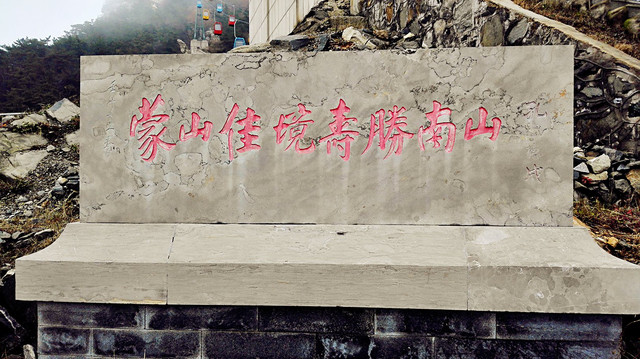 蒙山佳境寿勝南山